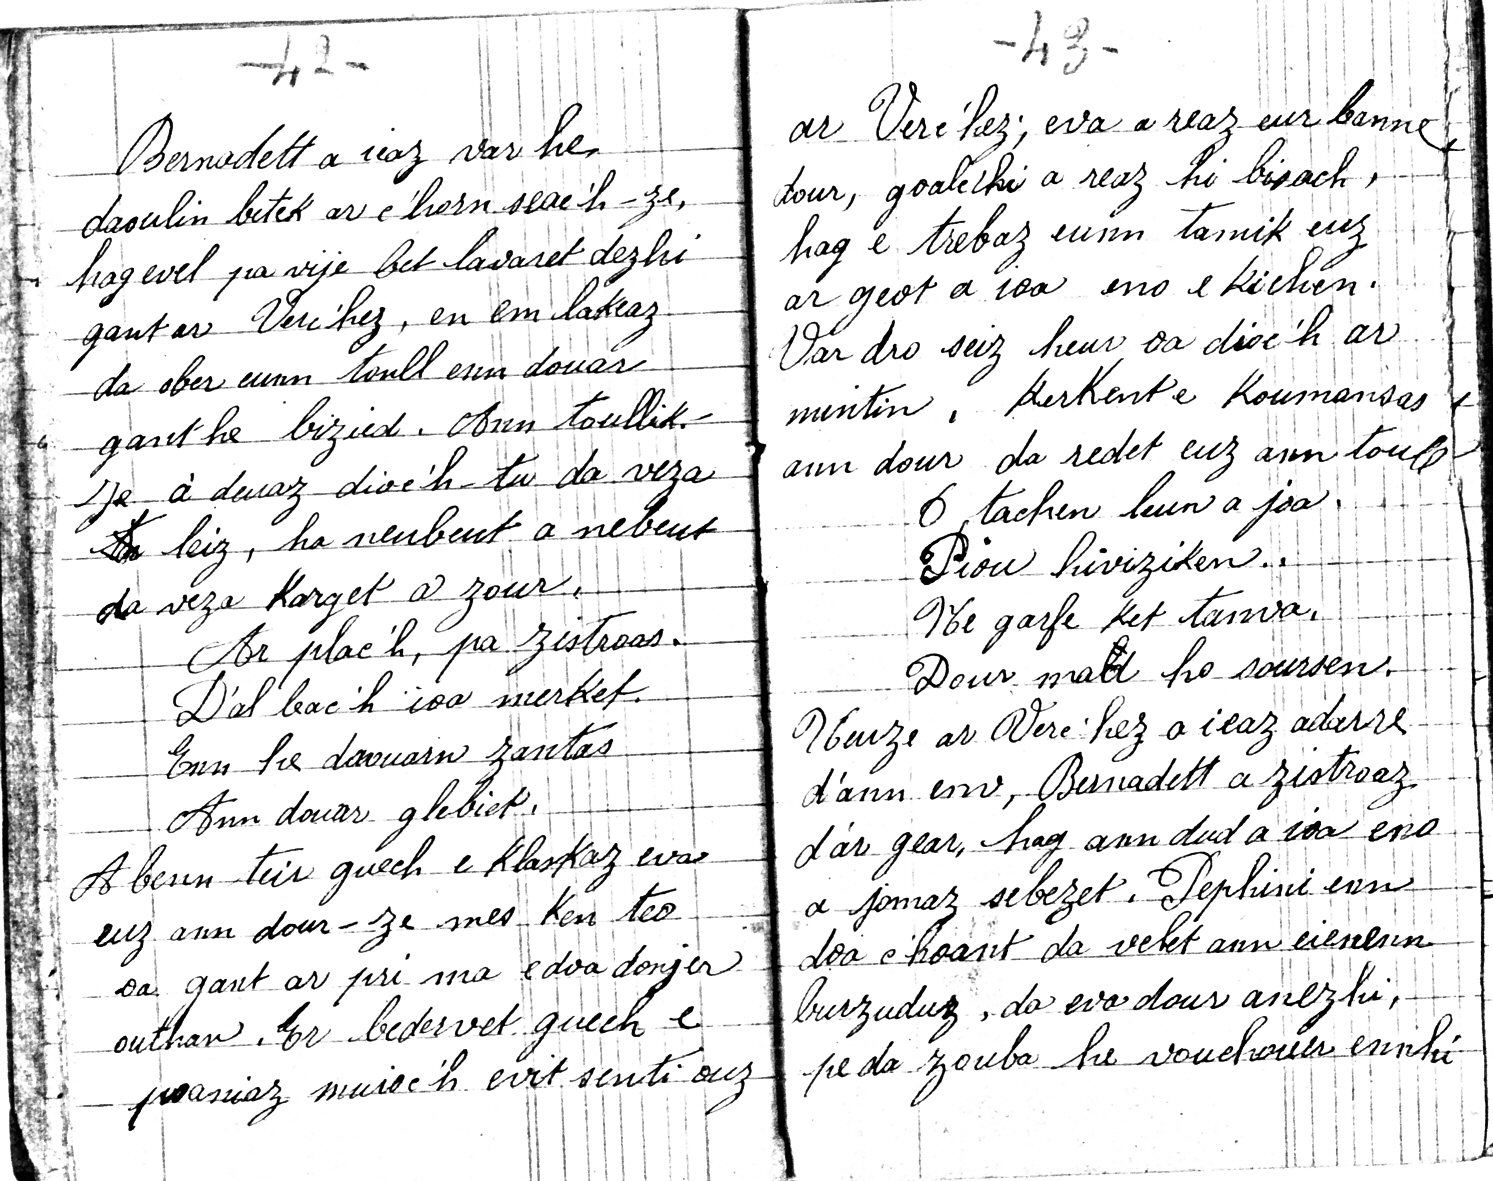 -42-
Bernadett a ieaz var he
daoulin betek ar c'horn seac'h-ze,
hag evel pa vije bet lavaret dezhi
gant ar Verc'hez, en em lakeaz
da ober eunn toull enn douar
gant he bizied. Ann toullik-
ze à deuaz dioc'h-tu da veza
leiz, ha neubeut a nebeut
da veza karget a zour.
Ar plac'h, pa zistroas.
D'al leac'h ioa merket.
Enn he daouarn zantas
Ann douar glebiet.
A benn teir guech e klaskaz eva
euz ann dour-ze mes ken teo
oa gant ar pri ma edoa donjer
outhan. Er bedervet guech e
poaniaz muioc'h evit senti ouz
-43-
ar Verc'hez; eva a reaz eur banne
dour, goalc'hi a reaz hi bisach,
hag e trebaz eunn tamik euz
ar geot a ioa eno e kichen.
Var dro seiz heur oa dioc'h ar
mintin, kerkent e koumansas
ann dour da redet euz ann toull
O tachen leun a joa.
Piou hiviziken..
Ne garfe ket tanva.
Dour mad ho soursen.
Neuze ar Verc'hez a ieaz adarre
d'ann env, Bernadett a zistroaz
d'ar gear, hag ann dud a ioa eno
a jomaz sebezet. Pephini enn
doa c'hoant da velet ann eienenn
burzuduz, da eva dour anezhi,
pe da zouba he vouchouer ennhi